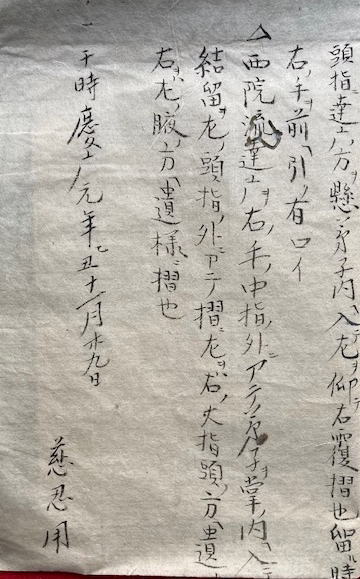 頭指達广ノ方ニ懸テ念子内ヘ入テ左ヲ仰テ右ヲ覆摺也留ル時
右ノ手ヲ前ヘ引ク有口イ
△西院流達广ヲ右ノ手ノ中指ノ外ニアテ念子ヲ掌ノ内ヘ入
結留ヲ左ノ頭指ノ外ニアテ摺ニ左ヲハ右ノ大指頭ノ方ヘ遣
右ヲハ左ノ腋ノ方ヘ遣様ニ摺也
于時慶安元年 十一月廿九日
慈忍用